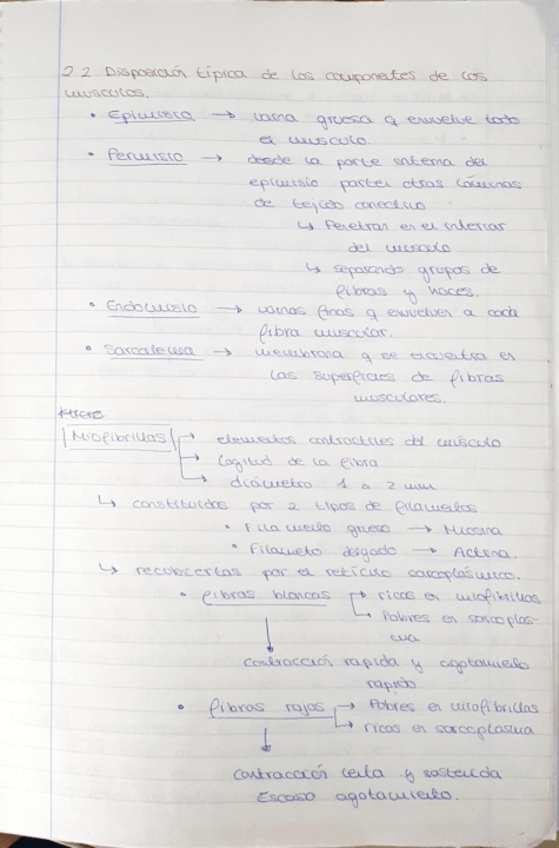 2.2 Disposición típica de los componentes de los
musculos.
• Epimisio → vaina gruesa q envuelve todo
el musculo.
• Perimisio → desde la parte interna del
epimisio parten otras láminas
de tejido conectivo
↳ Penetran en el interior
del musculo
↳ separando grupos de
fibras y haces.
• Endomisio → vainas finas q envuelven a cada
fibra muscular.
• Sarcolema → membrana q se encuentra en
las superficies de fibras
musculares.
Miofibrillas → elementos contractiles del músculo
→ Logitud de la fibra
→ diámetro 1 a 2 mm
↳ constituidas por 2 tipos de filamentos
• Filamento grueso → Miosina
• Filameto delgado → Actina.
↳ recubiertas por el retículo sarcoplásmico.
• fibras blancas → ricas en miofibrillas
→ Pobres en sarcoplas-
ma
contracción rapida y agotamiento
rapido
• fibras rojas → Pobres en miofibrillas
→ ricas en sarcoplasma
contracción lenta y sostenida
Escaso agotamiento.